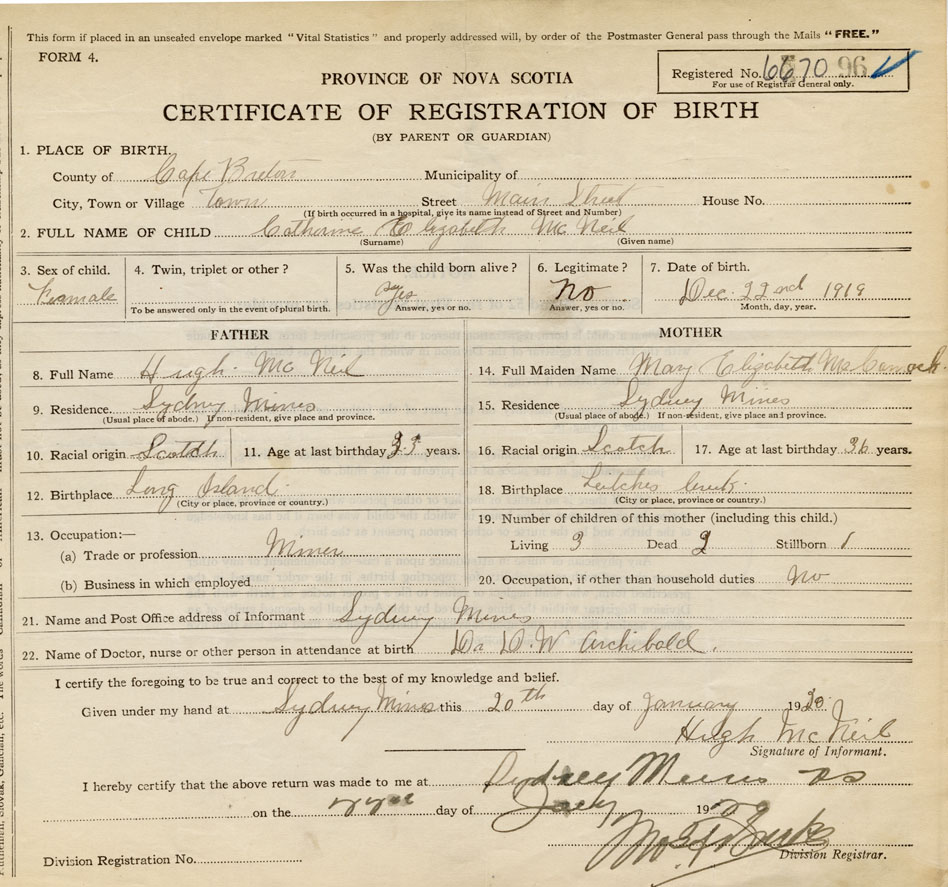 This form if placed in an unsealed envelope marked "Vital Statistics" and properly addressed will, by order of the Postmaster General pass through the Mails "FREE."
FORM 4.
PROVINCE OF NOVA SCOTIA
Registered No. 6670 96
For use of Registrar General only.
CERTIFICATE OF REGISTRATION OF BIRTH
(BY PARENT OR GUARDIAN)
1. PLACE OF BIRTH.
County of Cape Breton Municipality of
City, Town or Village Town Street Main Street House No.
(If birth occurred in a hospital, give its name instead of Street and Number)
2. FULL NAME OF CHILD Catherine Elizabeth McNeil
(Surname) (Given name)
3. Sex of child. 4. Twin, triplet or other? 5. Was the child born alive? 6. Legitimate? 7. Date of birth.
Female Yes No Dec. 22nd 1919
To be answered only in the event of plural birth. Answer, yes or no. Answer, yes or no. Month, day, year.
FATHER MOTHER
8. Full Name Hugh McNeil 14. Full Maiden Name Mary Elizabeth
9. Residence. Sydney Mines 15. Residence Sydney Mines
(Usual place of abode.) If non-resident, give place and province. (Usual place of abode.) If non-resident, give place and province.
10. Racial origin Scotch 11. Age at last birthday years. 16. Racial origin Scotch 17. Age at last birthday 36 years.
12. Birthplace Long Island 18. Birthplace Leitches Creek
(City or place, province or country.) (City or place, province or country.)
13. Occupation:— 19. Number of children of this mother (including this child.)
(a) Trade or profession Miner Living 3 Dead 2 Stillborn 1
(b) Business in which employed 20. Occupation, if other than household duties No
21. Name and Post Office address of Informant Sydney Mines
22. Name of Doctor, nurse or other person in attendance at birth Dr D. W Archibald.
I certify the foregoing to be true and correct to the best of my knowledge and belief.
Given under my hand at Sydney Mines this 20th day of January 1920.
Hugh McNeil
Signature of Informant.
I hereby certify that the above return was made to me at Sydney Mines
on the day of 19
Division Registration No. Division Registrar.